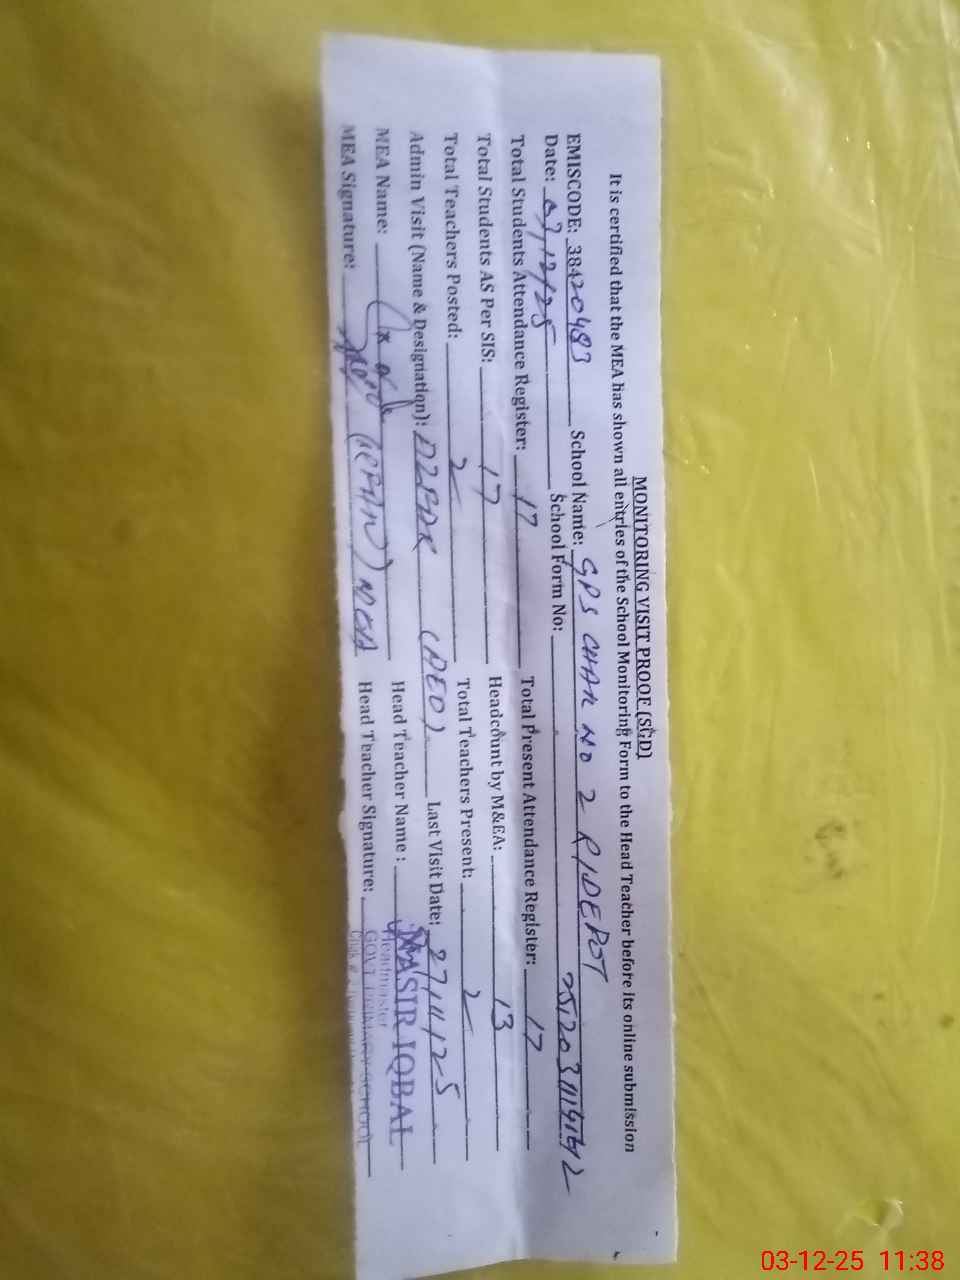 MONITORING VISIT PROOF (SGD)
It is certified that the MEA has shown all entries of the School Monitoring Form to the Head Teacher before its online submission
EMISCODE: 38420483 School Name: GPS CHAK NO 2 R/DEPOT
Date: 03/12/25 School Form No:
Total Students Attendance Register: 17 Total Present Attendance Register: 17
Total Students AS Per SIS: 17 Headcount by M&EA: 13
Total Teachers Posted: 2 Total Teachers Present: 2
Admin Visit (Name & Designation): (AEO) Last Visit Date: 27/11/25
MEA Name: Head Teacher Name :
MEA Signature: Head Teacher Signature:
NASIR IQBAL
Headmaster
GOVT PRIMARY SCHOOL
03-12-25 11:38